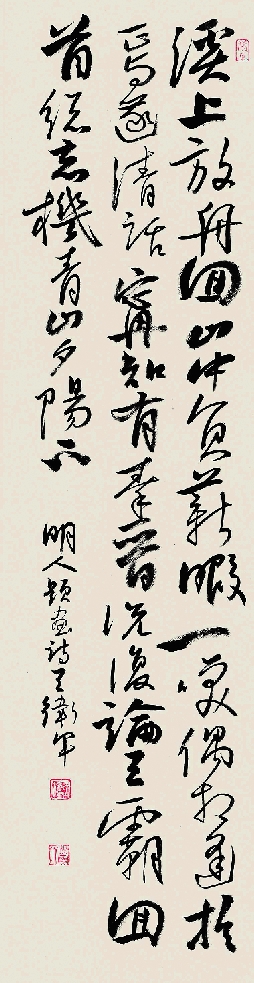 溪上放舟回山中負薪暇一笑偶相逢於
焉遂清話寧知有秦晉況復論王霸回
首總忘機青山夕陽下
明人題畫詩王衛軍